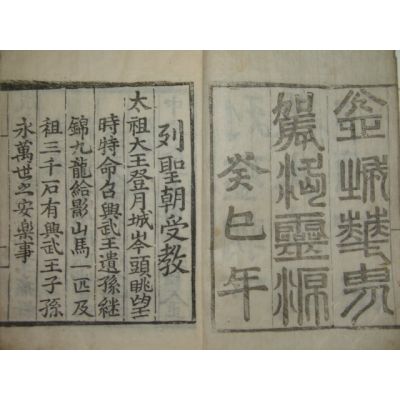 盆城華
駕洛靈源
癸巳年
列聖朝受教
太祖大王登月城岑頭眺望
時特命召興武王遺孫継
錦九龍給影山馬一匹及
祖三千石有興武王子孫
永萬世之安樂事